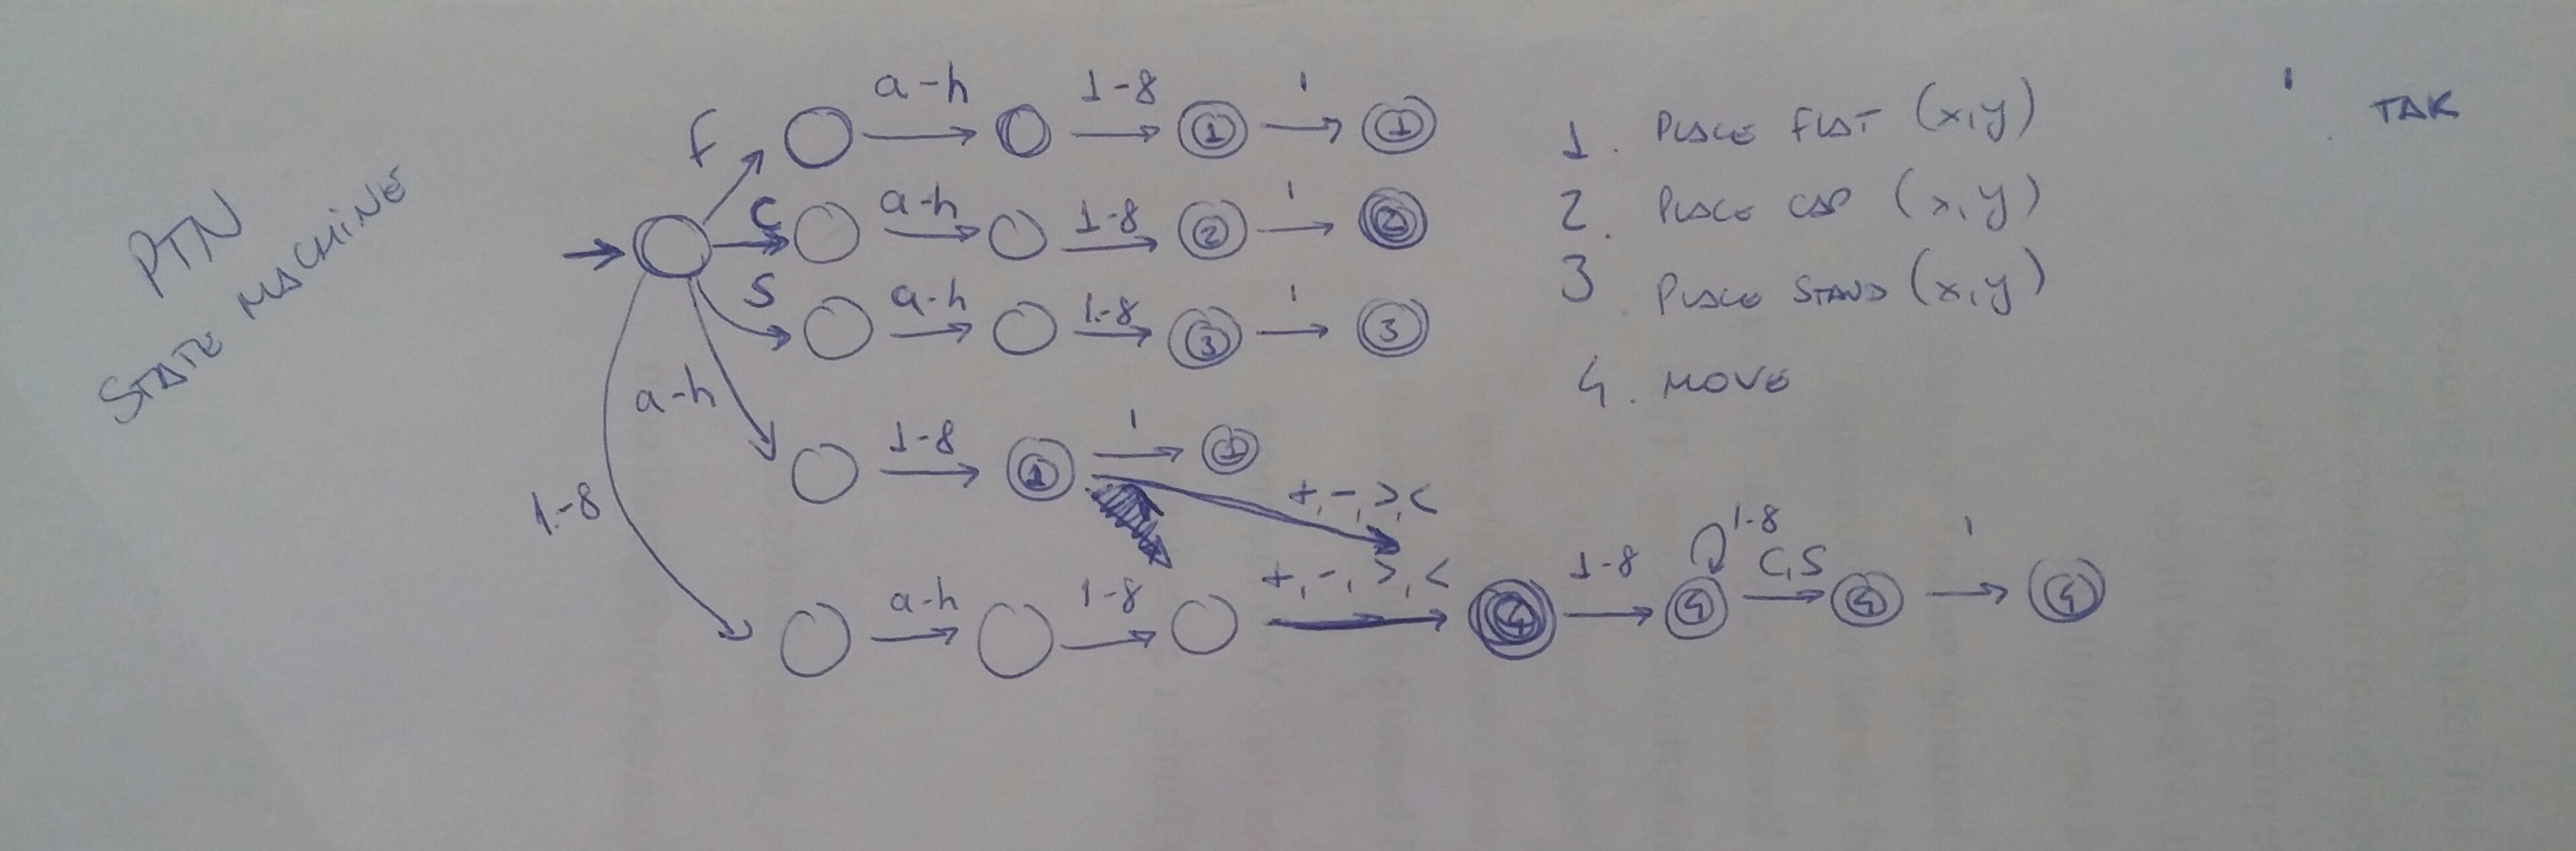 PTN
STATE MACHINE
F a-h 1-8 ① ' ①
C a-h 1-8 ② ' ②
S a-h 1-8 ③ ' ③
a-h 1-8 ① ' ①
+,-,>,<
1-8 a-h 1-8 +,-,>,< ④ 1-8 ④ 1-8 C,S ④ ' ④
1. PLACE FLAT (x,y)
2. PLACE CAP (x,y)
3. PLACE STAND (x,y)
4. MOVE
' TAK